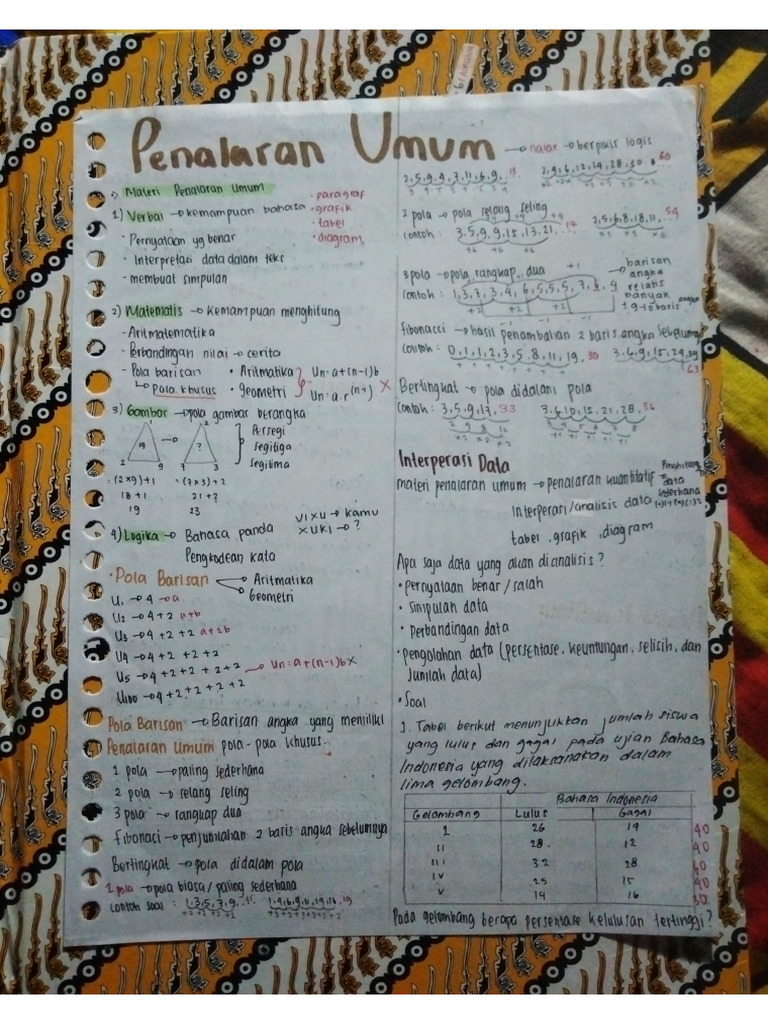 Penalaran Umum → nalar → berpikir logis
Materi Penalaran Umum
1) Verbal → kemampuan bahasa
• paragraf
• grafik
• tabel
• diagram
- Pernyataan yg benar
- Interpretasi data dalam teks
- membuat simpulan
2) Matematis → kemampuan menghitung
- Aritmatematika
- Perbandingan nilai → cerita
- Pola barisan • Aritmatika Un = a+(n-1)b
↳ pola khusus • geometri
3) Gambar → pola gambar berangka
Persegi
segitiga
segilima
19 → ?
2 9 7 3
(2x9)+1 = (7x3)+2
18+1 21+2
19 23
4) Logika → Bahasa panda
Pengkodean kata
VIXU → kamu
XUKI → ?
• Pola Barisan
Aritmatika
Geometri
U1 → 4 → a
U2 → 4+2 a+b
U3 → 4+2+2 a+2b
U4 → 4+2+2+2
U5 → 4+2+2+2+2 → Un = a+(n-1)b x
U100 → 4+2+2+2+2
Pola Barisan → Barisan angka yang memiliki
Penalaran Umum pola-pola khusus.
1 pola → paling sederhana
2 pola → selang seling
3 pola → rangkap dua
Fibonaci → penjumlahan 2 baris angka sebelumnya
Bertingkat → pola didalam pola
1 pola → pola biasa / paling sederhana
contoh soal : 1,3,5,7,9..
+2 +2 +2 +2
2,5,9,9,7,11,6,9
2 pola → pola selang seling
contoh : 3,5,9,9,15,13,21,.. 17
+6 +6 +6
2,5,6,8,18,11, 54
3 pola → pola rangkap dua
contoh : 1,3,7,3,4,6,5,5,5,7,6,4
+2 +2 +2
barisan
angka
relatif
banyak
fibonacci → hasil penambahan 2 baris angka sebelumnya
contoh : 0,1,1,2,3,5,8,11,19,30 3,6,9,15,24,39
63
Bertingkat → pola didalam pola
contoh : 3,5,9,17,33 3,6,10,15,21,28,36
2 4 8 16
x2 x2 x2
Interperasi Data
materi penalaran umum → penalaran kuantitatif
Interperasi/analisis data
tabel, grafik, diagram
Apa saja data yang akan dianalisis ?
• pernyataan benar / salah
• simpulan data
• perbandingan data
• pengolahan data (persentase, keuntungan, selisih, dan
Jumlah data)
• Soal
1. Tabel berikut menunjukkan jumlah siswa
yang lulus dan gagal pada ujian Bahasa
Indonesia yang dilaksanakan dalam
lima gelombang.
Bahasa Indonesia
Gelombang Lulus Gagal
I 26 14 40
II 28 12 40
III 32 28 60
IV 25 15 40
V 14 16 30
Pada gelombang berapa persentase kelulusan tertinggi?